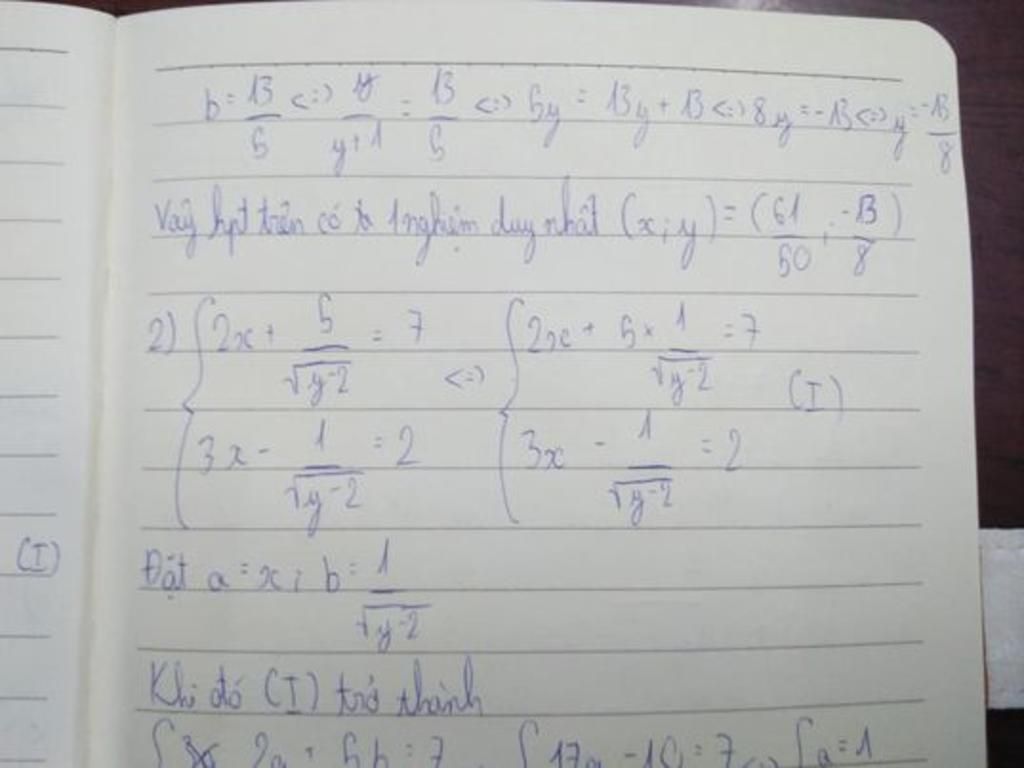 b = 13/5 <=> y/y+1 = 13/5 <=> 5y = 13y + 13 <=> 8y = -13 <=> y = -13/8
Vậy hpt trên có 1 nghiệm duy nhất (x; y) = (61/50; -13/8)
2) { 2x + 5/√y-2 = 7 <=> { 2x + 5 × 1/√y-2 = 7 (I)
3x - 1/√y-2 = 2 3x - 1/√y-2 = 2
(I)
Đặt a = x; b = 1/√y-2
Khi đó (I) trở thành
{ 2a + 5b = 7 { 17a - 10 = 7 <=> { a = 1